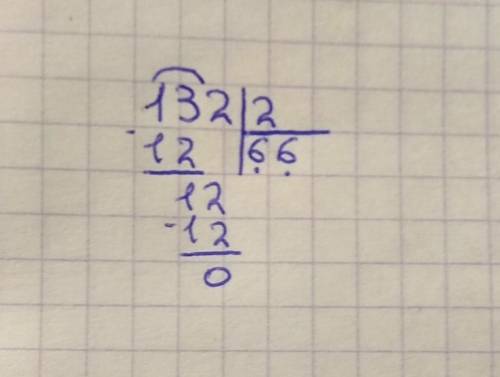 132 | 2
- 12 | 66
12
- 12
0